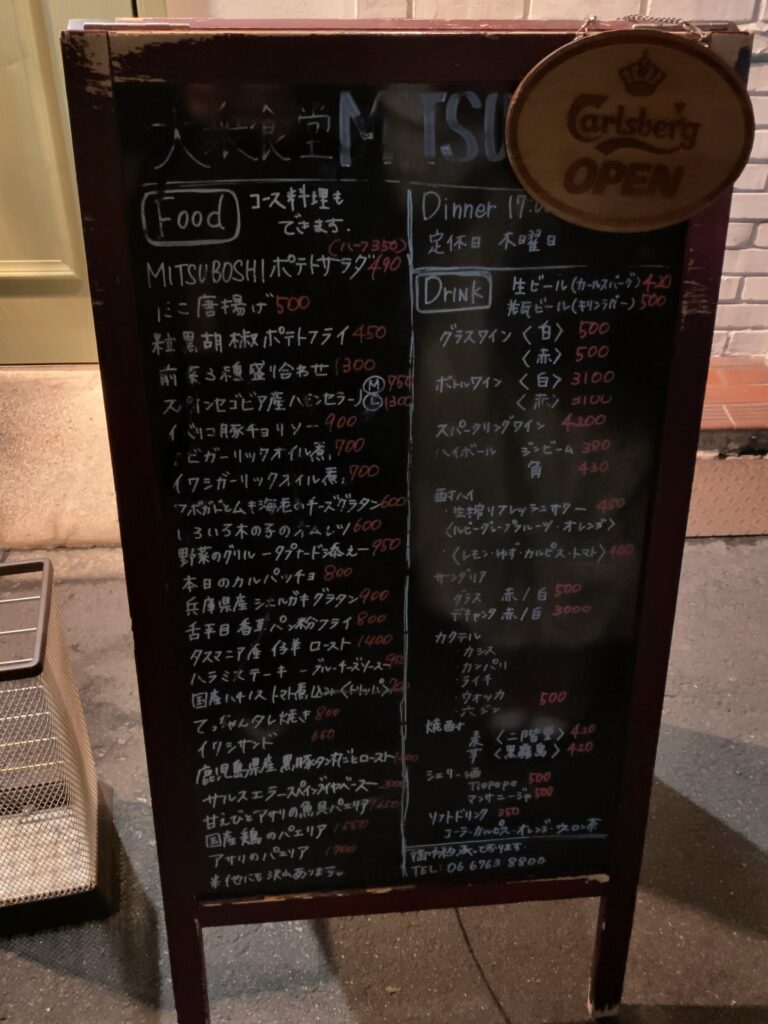 大衆食堂 MITSU
Carlsberg
OPEN
Food
コース料理も
できます.
Dinner 17:
定休日 木曜日
(ハーフ350)
MITSUBOSHIポテトサラダ 490
たこ唐揚げ 500
粒黒胡椒ポテトフライ 450
前菜3種盛り合わせ 1300
スペインセゴビア産ハモンセラーノ Ⓜ 950
Ⓛ 1300
イベリコ豚チョリソー 900
ビガーリックオイル煮 700
イワシガーリックオイル煮 700
海老のチーズグラタン 600
木の子のオムレツ 600
野菜のグリル 950
本日のカルパッチョ 800
兵庫県産 グラタン 900
舌平目香草パン粉フライ 800
タスマニア産 仔羊 ロースト 1400
ハラミステーキ ーブルーチーズソースー
国産ハチノス トマト煮込み〈トリッパ〉
てっちゃんタレ焼き 800
イワシサンド 650
鹿児島県産 黒豚 ロースト
甘えびとアサリの魚貝パエリア
国産鶏のパエリア 1550
アサリのパエリア
※他にも沢山あります。
Drink
生ビール(カールスバーグ) 420
瓶ビール(キリンラガー) 500
グラスワイン 〈白〉 500
〈赤〉 500
ボトルワイン 〈白〉 3100
〈赤〉 3100
スパークリングワイン 4200
ハイボール ジンビーム 380
角 430
酎ハイ
・生搾りフレッシュサワー 450
〈ルビーグレープフルーツ・オレンジ〉
〈レモン・ゆず・カルピス・トマト〉 400
サングリア
グラス 赤/白 500
デキャンタ 赤/白 3000
カクテル
・カシス
・カンパリ
・ライチ
・ウォッカ
・ジン 500
焼酎
麦 〈二階堂〉 420
芋 〈黒霧島〉 420
シェリー酒
Tiopepe 500
マンサニージャ 500
ソフトドリンク 350
コーラ・カルピス・オレンジ・ウーロン茶
御予約承っております.
TEL: 06 6763 8800